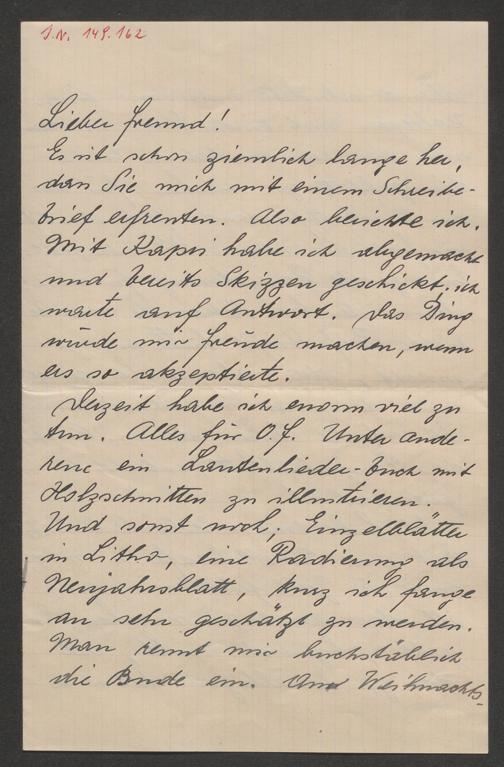 J.N. 149.162
Lieber Freund!
Es ist schon ziemlich lange her,
dan Sie mich mit einem Schreibe-
brief erfreuten. Also berichte ich.
Mit Kapri habe ich abgemacht
und bereits Skizzen geschickt, ich
warte auf Antwort. Das Ding
würde mir Freude machen, wenn
ers so akzeptierte.
Derzeit habe ich enorm viel zu
tun. Alles für O.F. Unter ande-
rem ein Lautenlieder-buch mit
Holzschnitten zu illustrieren.
Und sonst noch; Einzelblätter
in Litho, eine Radierung als
Neujahrsblatt, kurz ich fange
an sehr geschätzt zu werden.
Man rennt mir buchstäblich
die Bude ein. Weihnachts-